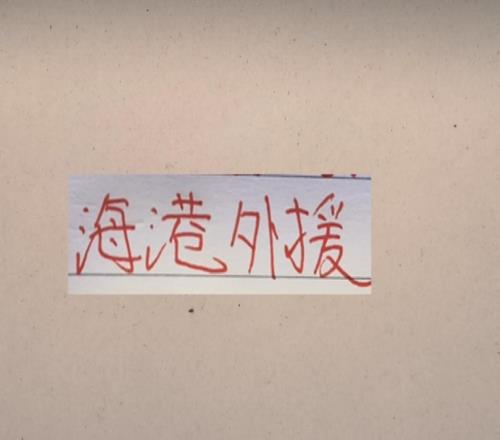 海港外援